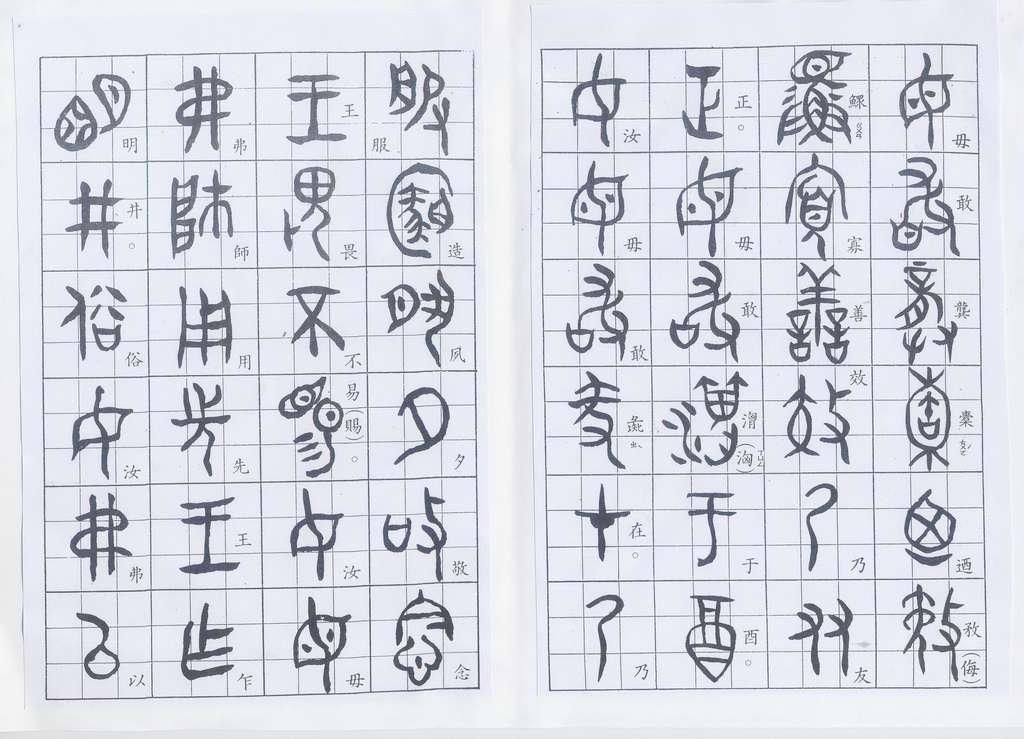 毋敢龔橐迺敄(侮)
鰥寡善效乃友
正。毋敢于酉。
汝毋敢在。乃
服造夙夕敬念
王畏不易(賜)。汝毋
弗師用先王乍
明井。俗汝弗以